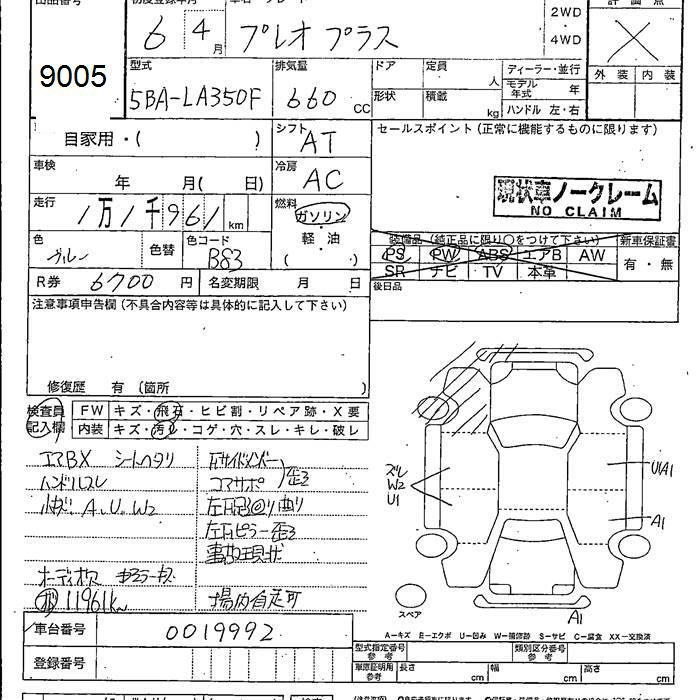 出品番号 初度登録年月 車名・グレード 評価点
6 4月 プレオプラス
2WD
・
4WD
9005
型式 排気量 ドア 定員 人 ディーラー・並行 外装 内装
5BA-LA350F 660 CC 形状 積載 kg モデル年式 年
ハンドル 左・右
自家用・( ) シフト AT
セールスポイント(正常に機能するものに限ります)
車検 年 月( 日) 冷房 AC
現状車ノークレーム
NO CLAIM
走行 1万1千961km 燃料 ガソリン・軽・油( )
装備品(純正品に限り○をつけて下さい) 新車保証書
色 ブルー 色替 色コード B83
PS PW ABS エアB AW 有・無
SR ナビ TV 本革
R券 6700円 名変期限 月 日
後日品
注意事項申告欄(不具合内容等は具体的に記入して下さい)
修復歴 有(箇所 )
検査員記入欄 FW キズ・飛石・ヒビ割・リペア跡・X要
内装 キズ・汚レ・コゲ・穴・スレ・キレ・破レ
エアBX シートヘタリ
ハンドルスレ コアサポ 歪
小キズ A.U.W2
左右ピラー歪
事故現状
11961km 場内自走可
ズレ
W2
U1
U1A1
A1
スペア
A1
車台番号 0019992
A-キズ E-エクボ U-凹み W-補修跡 S-サビ C-腐食 XX-交換済
登録番号
型式指定番号 参考 類別区分番号 参考
車庫証明用 参考 長さ cm 幅 cm 高さ cm